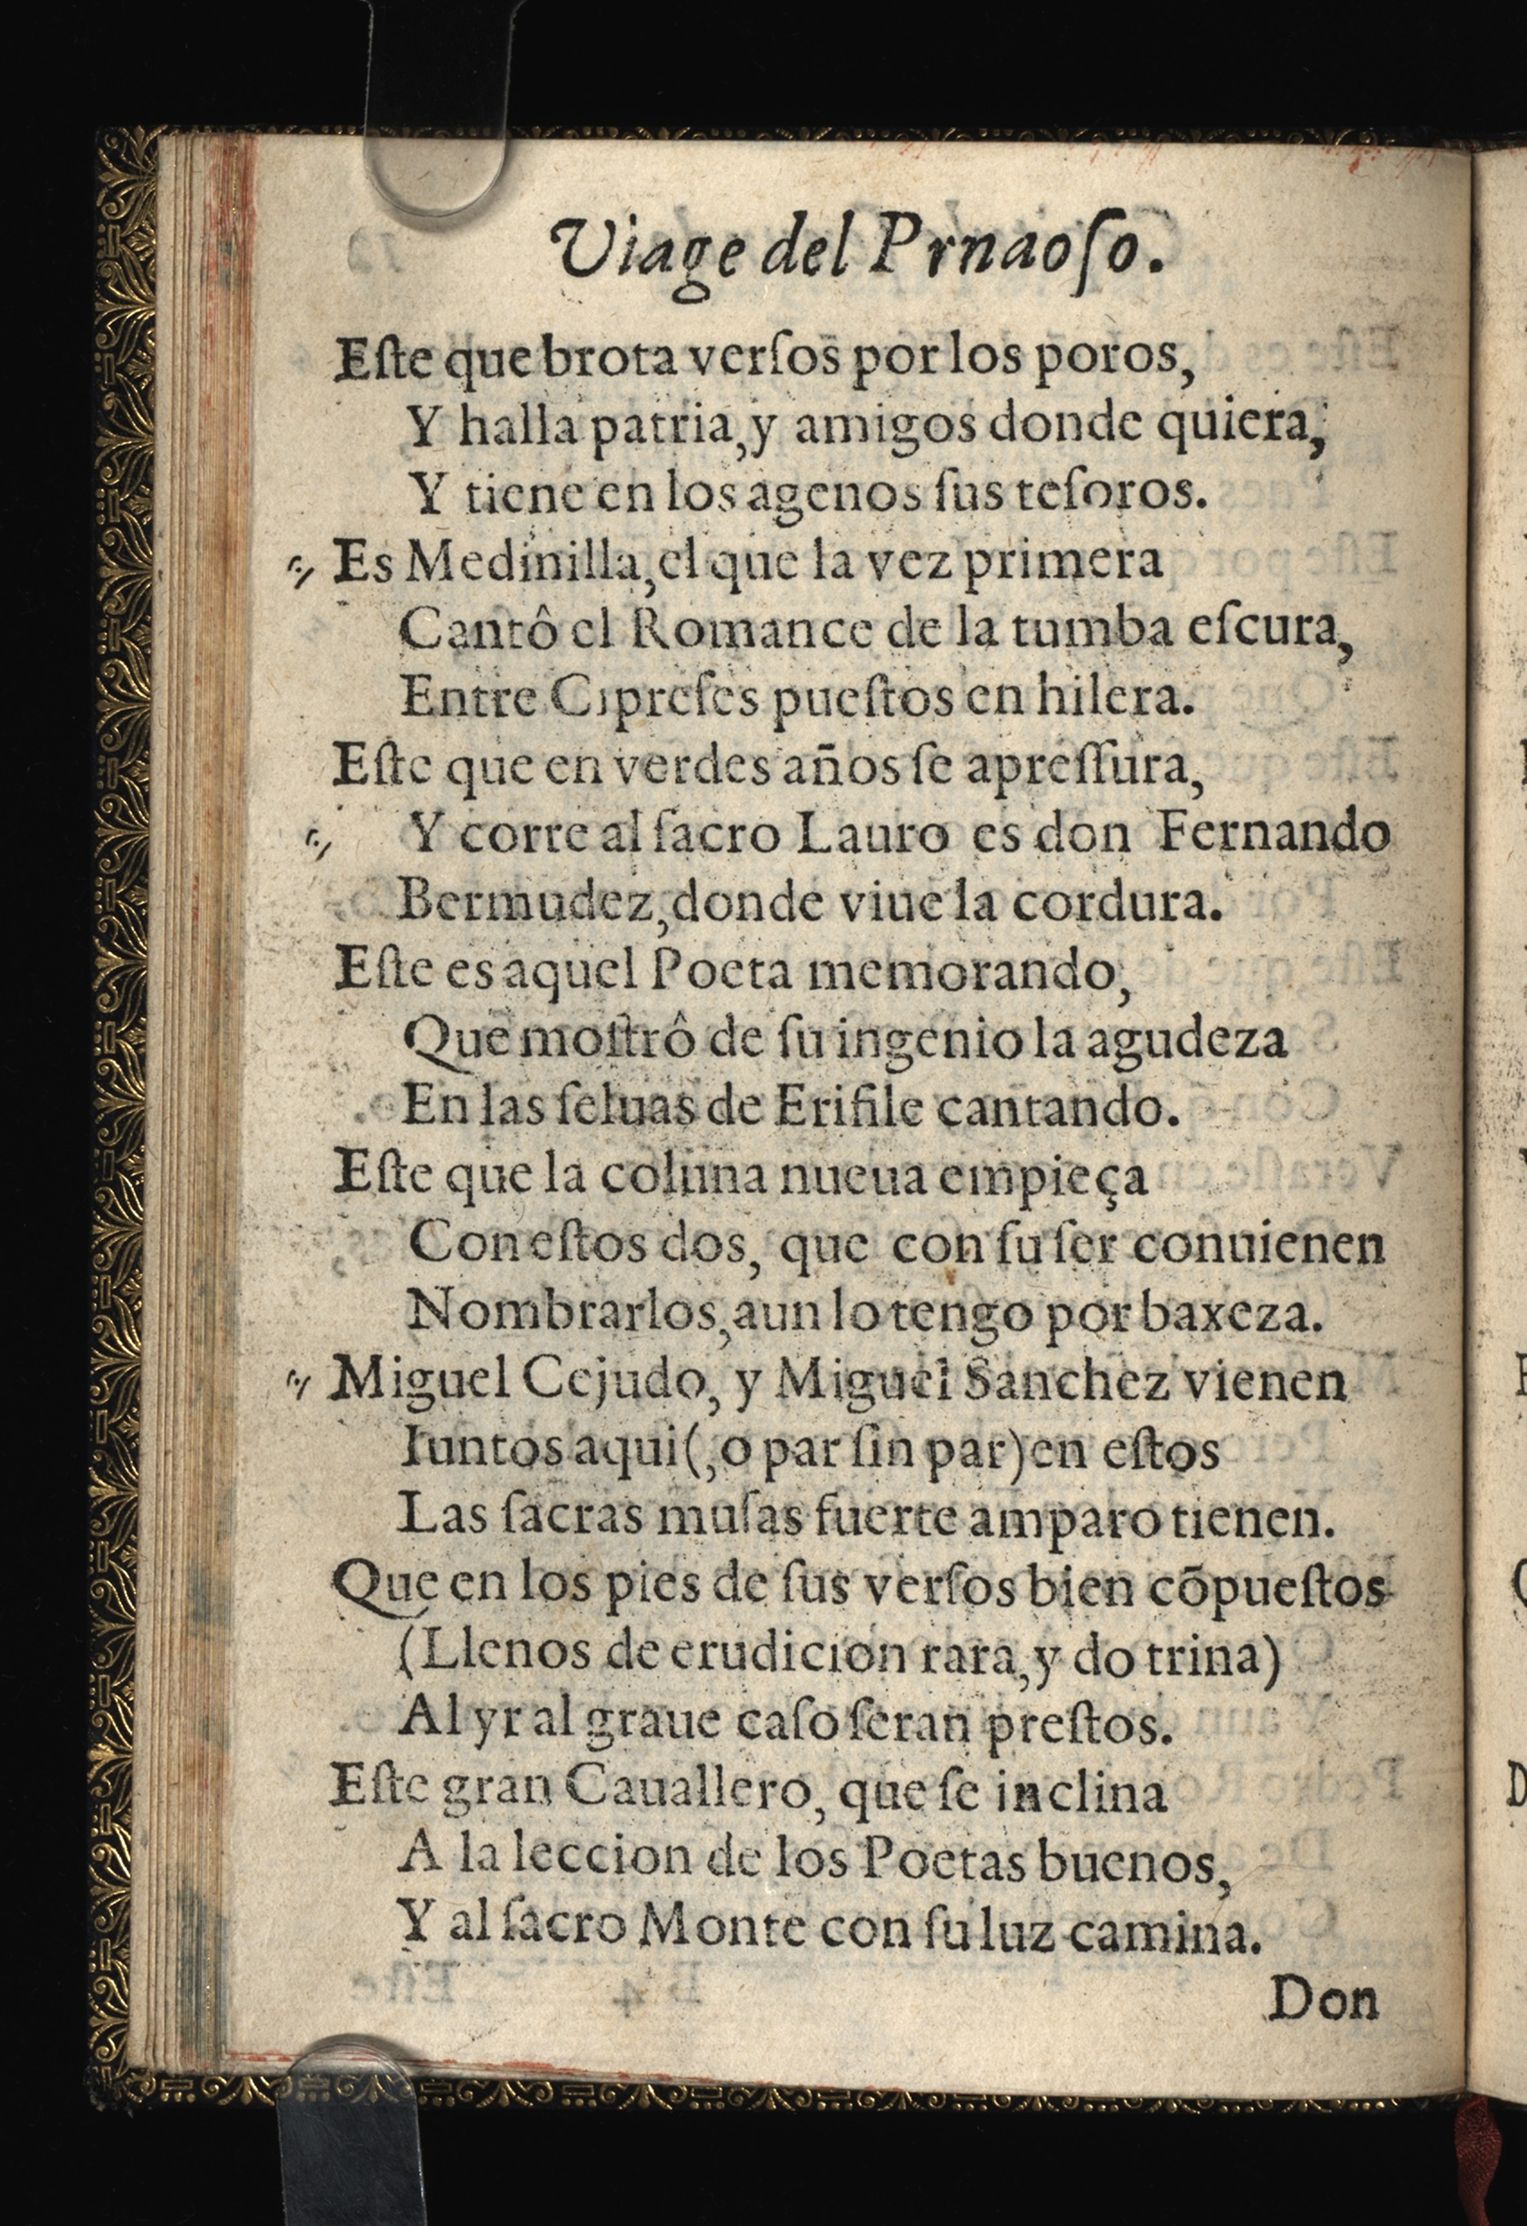 Viage del Prnaoſo.
Eſte que brota verſos por los poros,
Y halla patria, y amigos donde quiera,
Y tiene en los agenos ſus teſoros.
Es Medinilla, el que la vez primera
Cantô el Romance de la tumba eſcura,
Entre Cipreſes pueſtos en hilera.
Eſte que en verdes años ſe apreſſura,
Y corre al ſacro Lauro es don Fernando
Bermudez, donde viue la cordura.
Eſte es aquel Poeta memorando,
Que moſtrô de ſu ingenio la agudeza
En las ſeluas de Erifile cantando.
Eſte que la coluna nueua empieça
Con eſtos dos, que con ſu ſer conuienen
Nombrarlos, aun lo tengo por baxeza.
Miguel Cejudo, y Miguel Sanchez vienen
Iuntos aqui (, o par ſin par) en eſtos
Las ſacras muſas fuerte amparo tienen.
Que en los pies de ſus verſos bien cõpueſtos
(Llenos de erudicion rara, y do trina)
Al yr al graue caſo ſeran preſtos.
Eſte gran Cauallero, que ſe inclina
A la leccion de los Poetas buenos,
Y al ſacro Monte con ſu luz camina.
Don